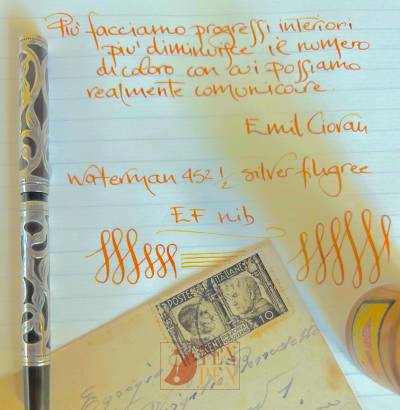 Più facciamo progressi interiori
più diminuisce il numero
di coloro con cui possiamo
realmente comunicare.
Emil Cioran
Waterman 452 1/2 silver filigree
EF nib
POSTE ITALIANE
CENT 10
PEN
Egregio